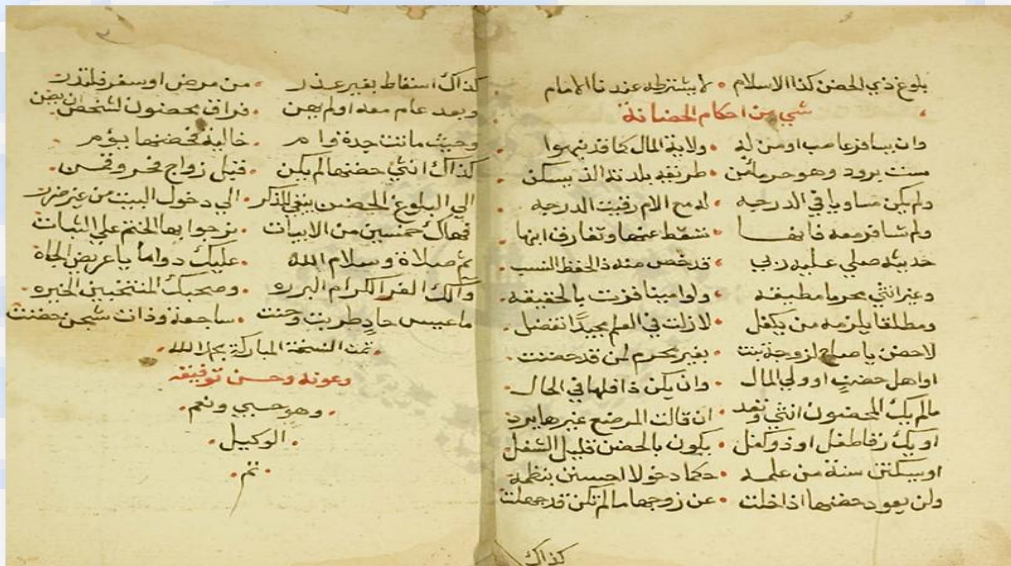 بلوغ ذي الحضن كذا الاسلام • لا يشترطه عندنا الامام
شيء من احكام الحضانة
وان يسافر عاصب او من له • ولاية المال كما قد
ست برود وهو حر مأمن • طريقه بلدته الذ يسكن
ولم يكن مساويا في الدرجه • له مع الام رقيت الدرجه
ولم تسافر معه فانها • تسقط عنها وتفارق ابنها
حديثه صلى عليه ربي • قد خص منه ذا لحفظ النسب
وغير انثي محرما مطيقه • ولو امينا فزت بالحقيقه
ومطلقا يلزمه من يكفل • لازلت في العلم مجيدا تفضل
لا حضن يا صاح لزوجة بنت • بغير محرم لمن قد حضنت
او اهل حضن او ولي المال • وان يكن ذا فلها في الحال
مالم يك المحضون انثي وتعد • ان قالت المرضع غيرها يرد
او يك رقا طفل او ذو كفل • يكون بالحضن قليل الشغل
او سكتن سنة من علمه • حكما دخولا احسنن بنظمه
ولن يعود حضنها اذا خلت • عن زوجها مالم تكن قد جهلت
كذاك
كذاك اسقاط بغير عذر • من مرض او سفر فلتدر
وبعد عام معه اولم يبن • فراق محضون لشخص
وحيث ماتت جدة وام • خالية فحضنها يؤم
كذاك انثي حضنها لم يكن • قبل زواج فخر وتمن
الي البلوغ الحضن يبقي للذكر • الي دخول البيت من غير ضرر
فهاك خمسين من الابيات • نرجوا بها الختم علي الثبات
ثم صلاة وسلام الله • عليك دواما يا عريض الجاه
وآلك الغر الكرام البرره • وصحبك المنتخبين الخيره
ما عيس حاد طربت وحنت • ساجعة وذات شجن حضنت
تمت النسخة المباركة بحمد الله
وعونه وحسن توفيقه
وهو حسبي ونعم
الوكيل
تم